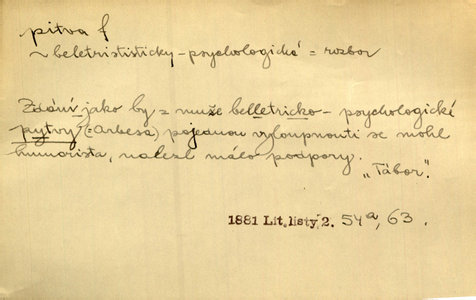 pitva f
~ beletrististicky-psychologická = rozbor
Zdání jako by z muže belletricko-psychologické
pytvy (= Arbesa) pojednou vyloupnouti se mohl
humorista, nalezl málo podpory.
„Tábor".
1881 Lit. listy 2. 54a, 63.